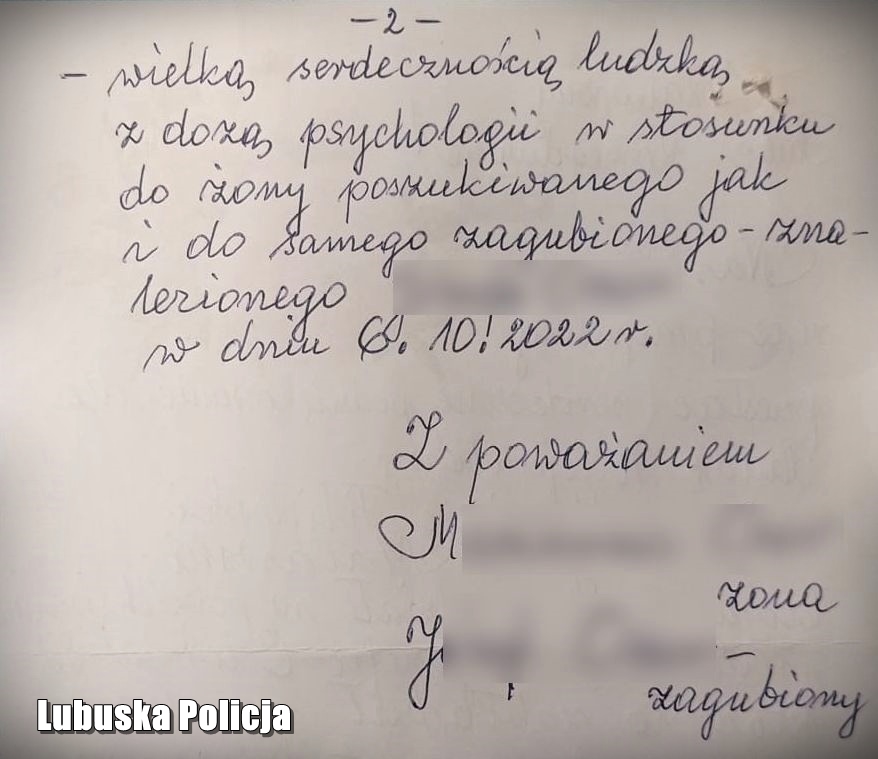 - 2 -
- wielką serdecznością ludzką
z dozą psychologii w stosunku
do żony poszukiwanego jak
i do samego zagubionego - zna-
lezionego
w dniu 6. 10! 2022 r.
Z poważaniem
M
żona
J
zagubiony
Lubuska Policja